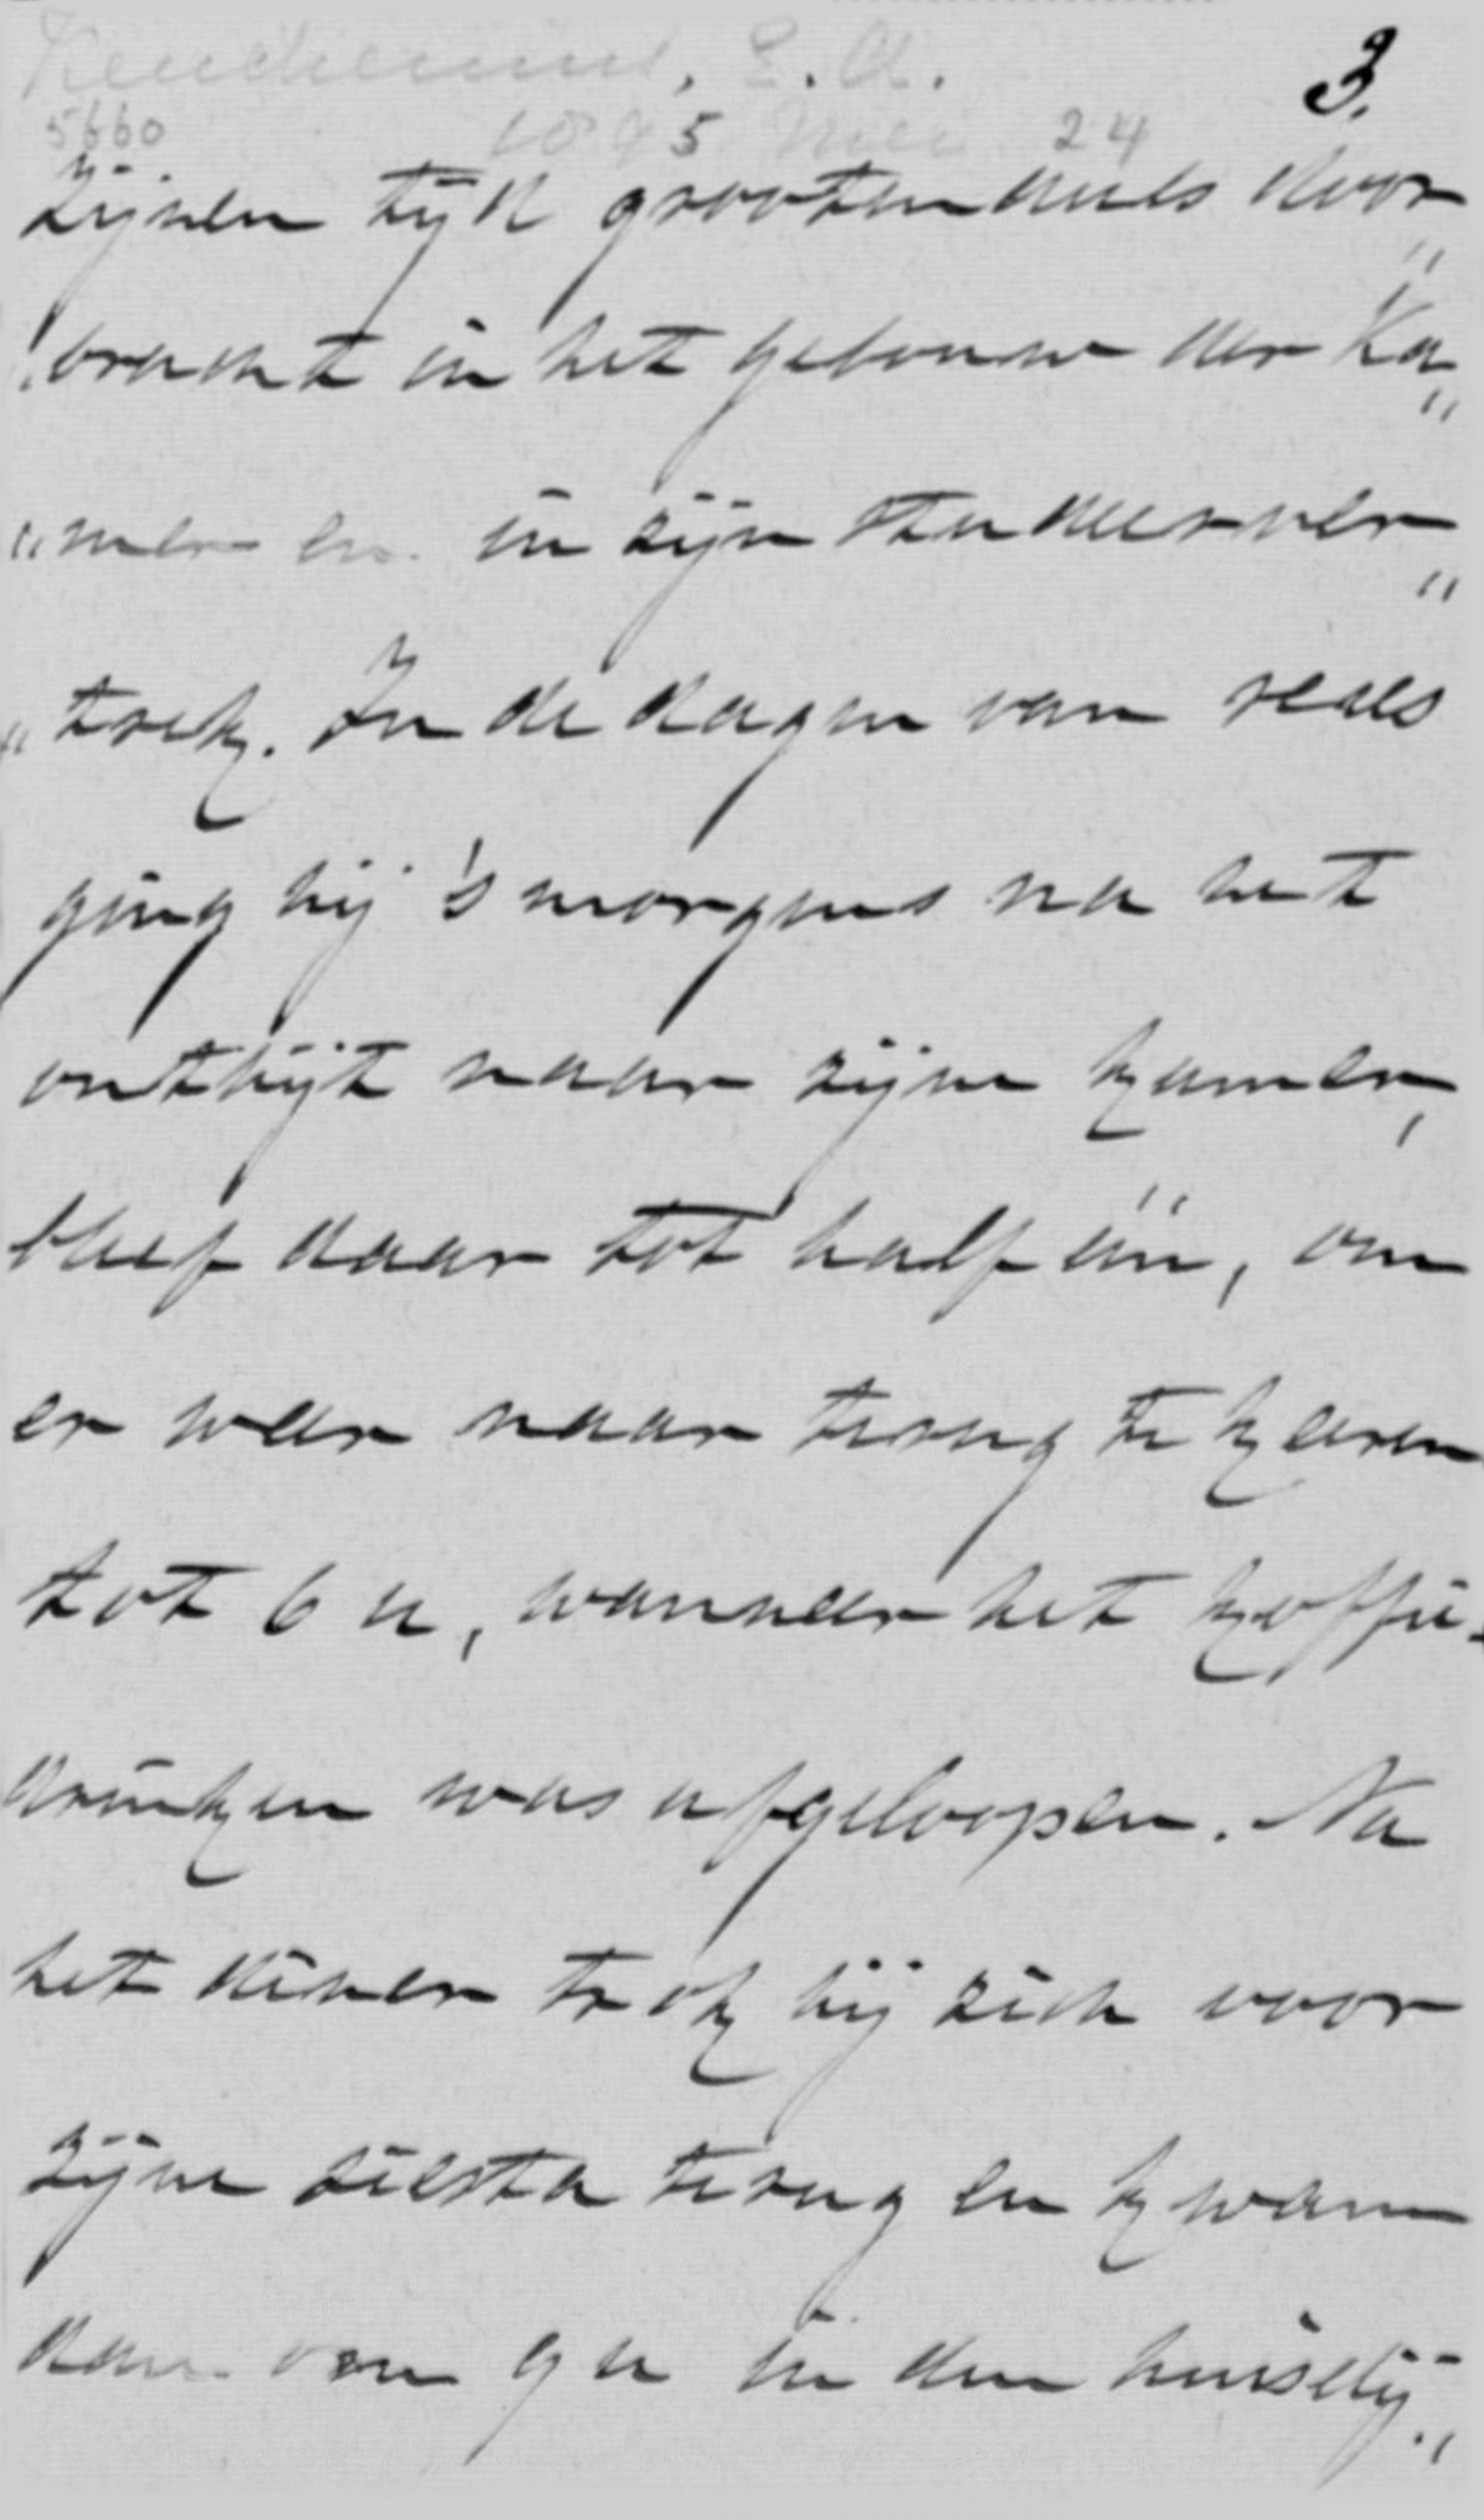 Keuchenius, L.A.
3.
5660
1895 Mei 24
zijnen tijd grootendeels door„
„bracht in het gebouw der Ka„
„mer en in zijn studeerver„
„trek. In de dagen van reces
ging hij 's morgens na het
ontbijt naar zijne kamer,
bleef daar tot half één, om
er weer naar terug te keeren
tot 6 u, wanneer het koffie-
drinken was afgeloopen. Na
het diner trok hij zich voor
zijne siësta terug en kwam
dan om 9 u in den huiselij„